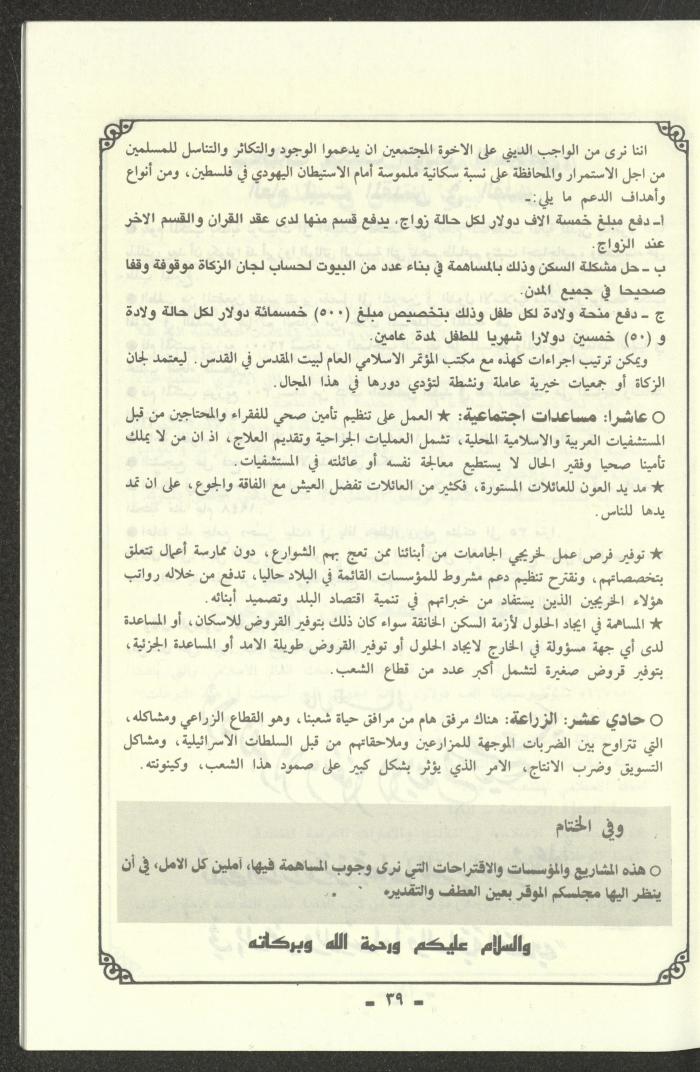 اننا نرى من الواجب الديني على الاخوة المجتمعين ان يدعموا الوجود والتكاثر والتناسل للمسلمين
من اجل الاستمرار والمحافظة على نسبة سكانية ملموسة أمام الاستيطان اليهودي في فلسطين، ومن أنواع
وأهداف الدعم ما يلي:ـ
اـ دفع مبلغ خمسة الاف دولار لكل حالة زواج، يدفع قسم منها لدى عقد القران والقسم الاخر
عند الزواج.
ب ـ حل مشكلة السكن وذلك بالمساهمة في بناء عدد من البيوت لحساب لجان الزكاة موقوفة وقفا
صحيحا في جميع المدن.
ج ـ دفع منحة ولادة لكل طفل وذلك بتخصيص مبلغ (٥٠٠) خمسمائة دولار لكل حالة ولادة
و (٥٠) خمسين دولارا شهريا للطفل لمدة عامين.
ويمكن ترتيب اجراءات كهذه مع مكتب المؤتمر الاسلامي العام لبيت المقدس في القدس. ليعتمد لجان
الزكاة أو جمعيات خيرية عاملة ونشطة لتؤدي دورها في هذا المجال.
○ عاشرا: مساعدات اجتماعية: ★ العمل على تنظيم تأمين صحي للفقراء والمحتاجين من قبل
المستشفيات العربية والاسلامية المحلية، تشمل العمليات الجراحية وتقديم العلاج، اذ ان من لا يملك
تأمينا صحيا وفقير الحال لا يستطيع معالجة نفسه أو عائلته في المستشفيات.
★ مد يد العون للعائلات المستورة، فكثير من العائلات تفضل العيش مع الفاقة والجوع، على ان تمد
يدها للناس.
★ توفير فرص عمل لخريجي الجامعات من أبنائنا ممن تعج بهم الشوارع، دون ممارسة أعمال تتعلق
بتخصصاتهم، ونقترح تنظيم دعم مشروط للمؤسسات القائمة في البلاد حاليا، تدفع من خلاله رواتب
هؤلاء الخريجين الذين يستفاد من خبراتهم في تنمية اقتصاد البلد وتصميد أبنائه.
★ المساهمة في ايجاد الحلول لأزمة السكن الخانقة سواء كان ذلك بتوفير القروض للاسكان، أو المساعدة
لدى أي جهة مسؤولة في الخارج لايجاد الحلول أو توفير القروض طويلة الامد أو المساعدة الجزئية،
بتوفير قروض صغيرة لتشمل أكبر عدد من قطاع الشعب.
○ حادي عشر: الزراعة: هناك مرفق هام من مرافق حياة شعبنا، وهو القطاع الزراعي ومشاكله،
التي تتراوح بين الضربات الموجهة للمزارعين وملاحقاتهم من قبل السلطات الاسرائيلية، ومشاكل
التسويق وضرب الانتاج، الامر الذي يؤثر بشكل كبير على صمود هذا الشعب، وكينونته.
وفي الختام
○ هذه المشاريع والمؤسسات والاقتراحات التي نرى وجوب المساهمة فيها، آملين كل الامل، في أن
ينظر اليها مجلسكم الموقر بعين العطف والتقدير.
والسلام عليكم ورحمة الله وبركاته
ـ ٣٩ ـ